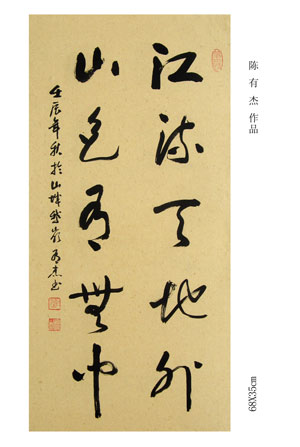 江流天地外
山色有無中
壬辰年秋於山城鵝岭有杰書
陈有杰作品
68X35cm